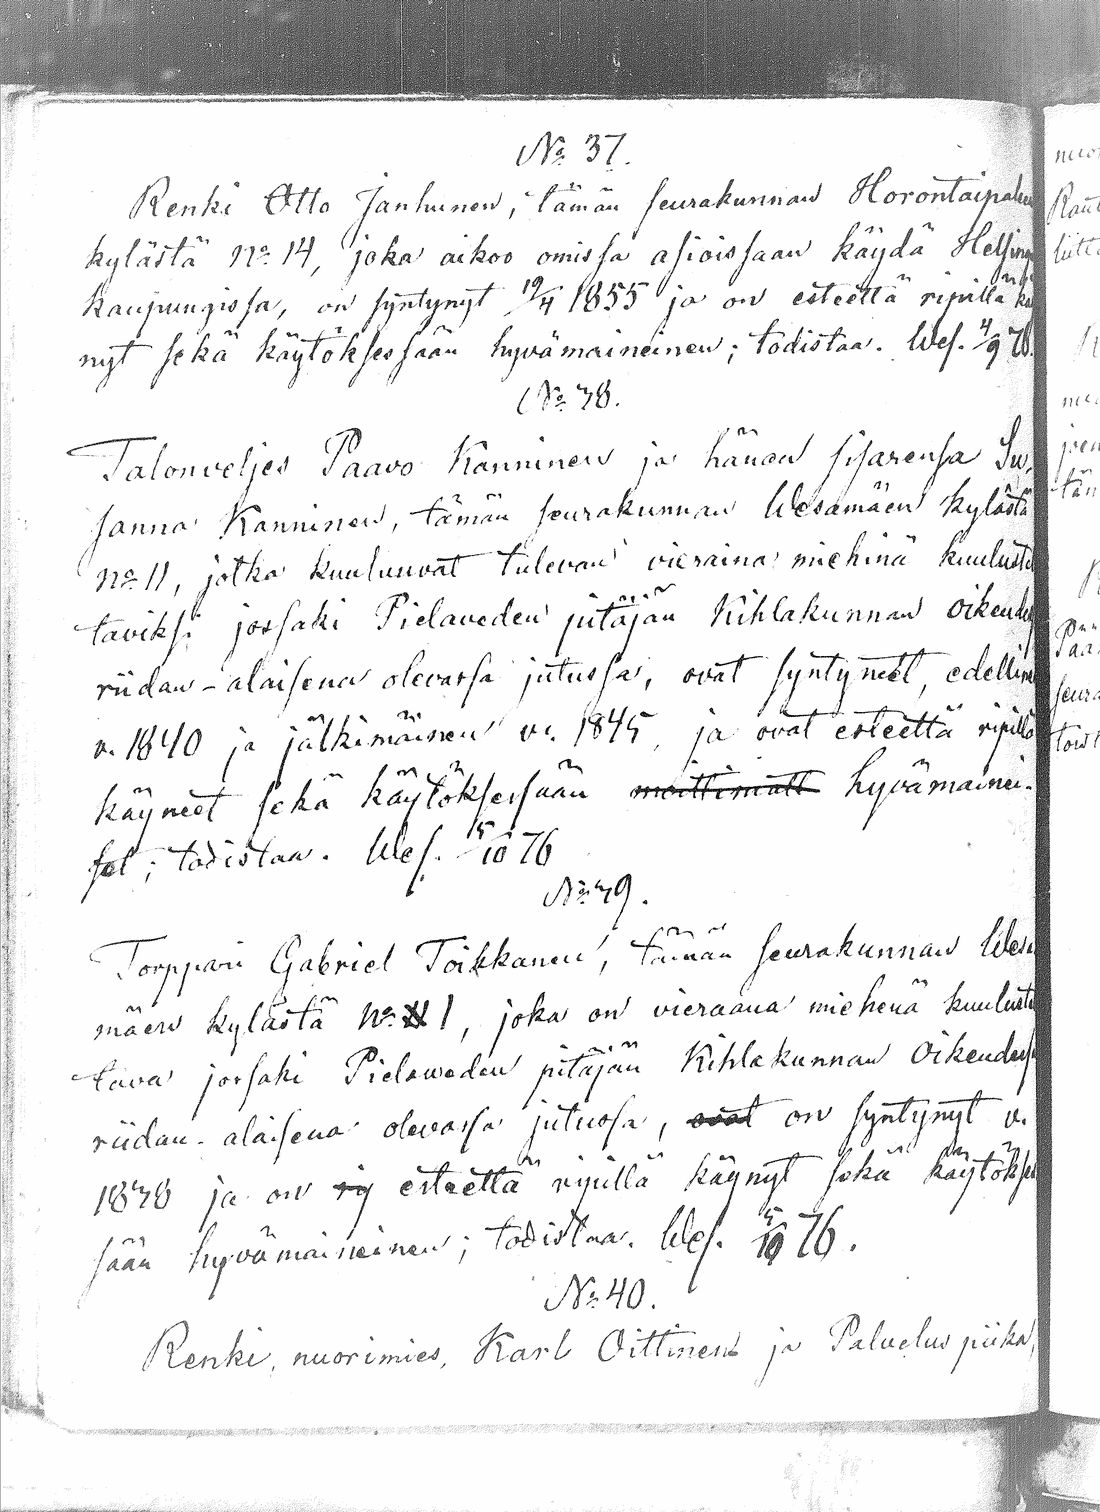 No 37.
Renki Otto Janhunen, tämän seurakunnan Horontaipaleen
kylästä no 14, joka aikoo omissa asioissaan käydä Helsingin
kaupungissa, on syntynyt 19/4 1855 ja on esteettä ripillä käy
nyt sekä käytöksessään hyvämaineinen; todistaa. Wes. 4/9 76.
No 38.
Talonveljes Paavo Kanninen ja hänen sisarensa Su,
sanna Kanninen, tämän seurakunnan Wesamäen kylästä
no 11, jotka kuuluuvat tulevan vieraina miehinä kuulustel
taviksi jossaki Pielaveden pitäjän Kihlakunnan oikeudessa
riidan-alaisena olevassa jutussa, ovat syntyneet, edellinen
v. 1840 ja jälkimäinen v. 1845, ja ovat esteettä ripillä
käyneet sekä käytöksessään moittimatt hyvämainei-
set; todistaa. Wes. 15/10 76
No 39.
Torppari Gabriel Toikkanen, tämän seurakunnan Wesa
mäen kylästä no 1, joka on vieraana miehenä kuulustel
tava jossaki Pielaweden pitäjän Kihlakunnan Oikeudessa
riidan-alaisena olevassa jutussa, ovat on syntynyt v.
1838 ja on rij esteettä ripillä käynyt sekä käytökses
sään hyvämaineinen; todistaa. Wes. 15/10 76.
No 40.
Renki, nuorimies, Karl Oittinen ja Palvelus piika,
nuor
Raut
liitt
seura